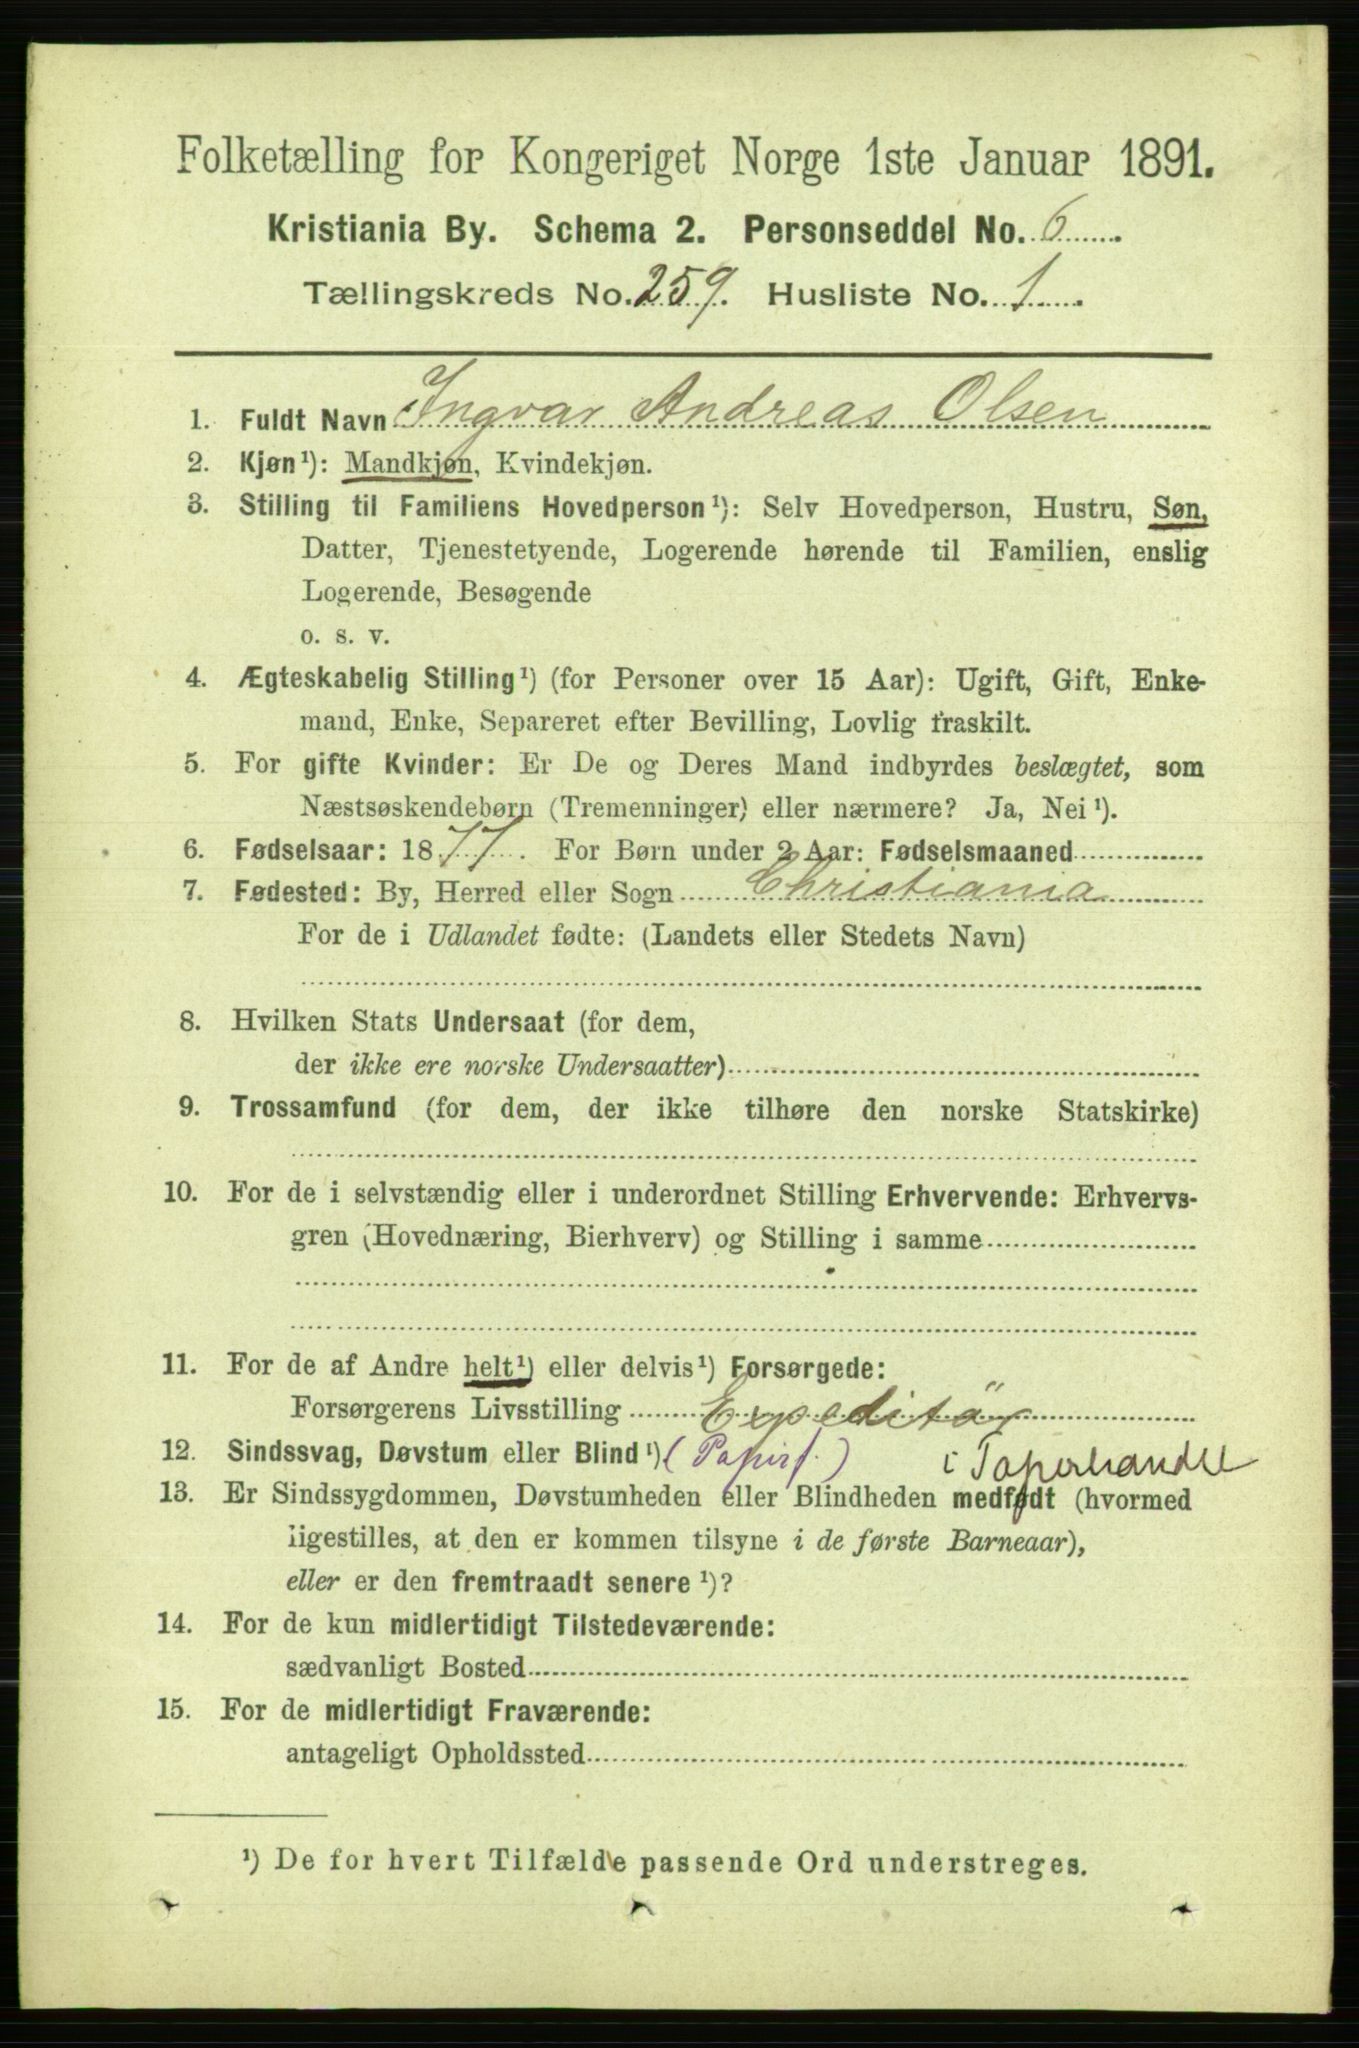 Folketælling for Kongeriget Norge 1ste Januar 1891.
Kristiania By. Schema 2. Personseddel No. 6
Tællingskreds No. 259. Husliste No. 1
1. Fuldt Navn Ingvar Andreas Olsen
2. Kjøn¹): Mandkjøn, Kvindekjøn.
3. Stilling til Familiens Hovedperson¹): Selv Hovedperson, Hustru, Søn,
Datter, Tjenestetyende, Logerende hørende til Familien, enslig
Logerende, Besøgende
o. s. v.
4. Ægteskabelig Stilling¹) (for Personer over 15 Aar): Ugift, Gift, Enke-
mand, Enke, Separeret efter Bevilling, Lovlig fraskilt.
5. For gifte Kvinder: Er De og Deres Mand indbyrdes beslægtet, som
Næstsøskendebørn (Tremenninger) eller nærmere? Ja, Nei¹).
6. Fødselsaar: 1877. For Børn under 2 Aar: Fødselsmaaned
7. Fødested: By, Herred eller Sogn Christiania
For de i Udlandet fødte: (Landets eller Stedets Navn)
8. Hvilken Stats Undersaat (for dem,
der ikke ere norske Undersaatter)
9. Trossamfund (for dem, der ikke tilhøre den norske Statskirke)
10. For de i selvstændig eller i underordnet Stilling Erhvervende: Erhvervs-
gren (Hovednæring, Bierhverv) og Stilling i samme
11. For de af Andre helt¹) eller delvis¹) Forsørgede:
Forsørgerens Livsstilling Expeditär
12. Sindssvag, Døvstum eller Blind¹) (Papirf.) i Paperhandel
13. Er Sindssygdommen, Døvstumheden eller Blindheden medfødt (hvormed
ligestilles, at den er kommen tilsyne i de første Barneaar),
eller er den fremtraadt senere¹)?
14. For de kun midlertidigt Tilstedeværende:
sædvanligt Bosted
15. For de midlertidigt Fraværende:
antageligt Opholdssted
¹) De for hvert Tilfælde passende Ord understreges.